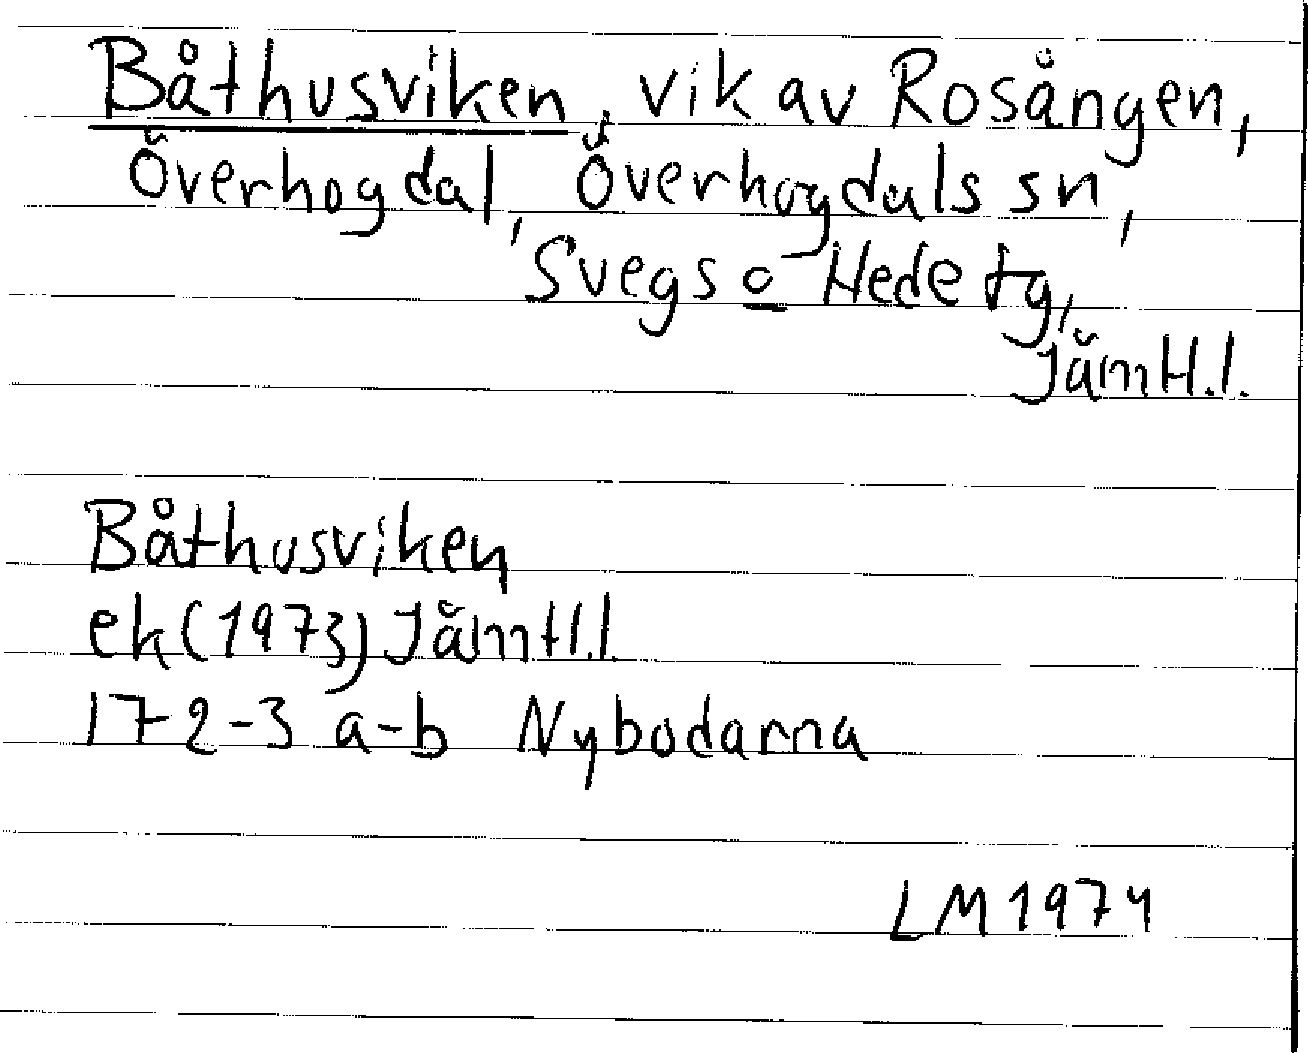 Båthusviken, vik av Rosången,
Överhogdal, Överhogdals sn,
Svegs o Hede tg,
Jämtl.l.
Båthusviken
ek (1973) Jämtl.l
172-3 a-b Nybodarna
LM 1974